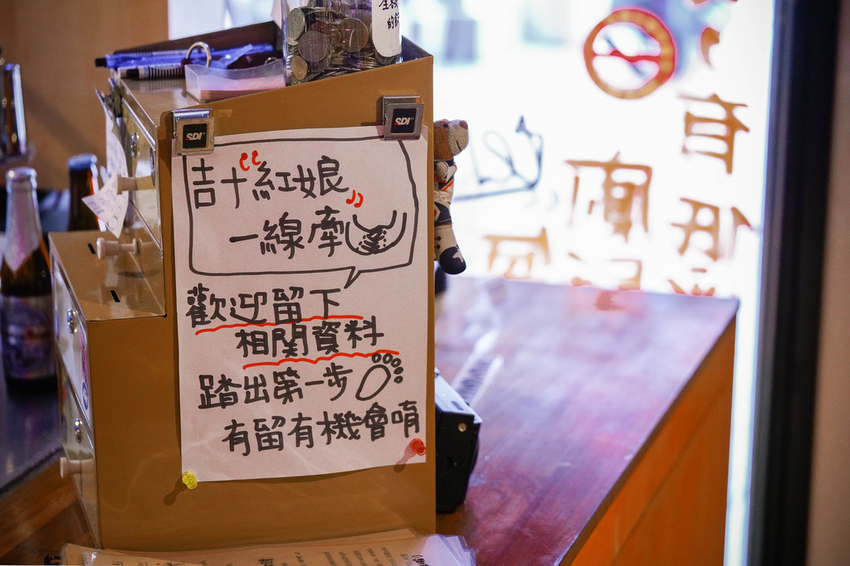 SDI
SDI
吉十“紅娘”
一線牽
歡迎留下
相關資料
踏出第一步
有留有機會唷